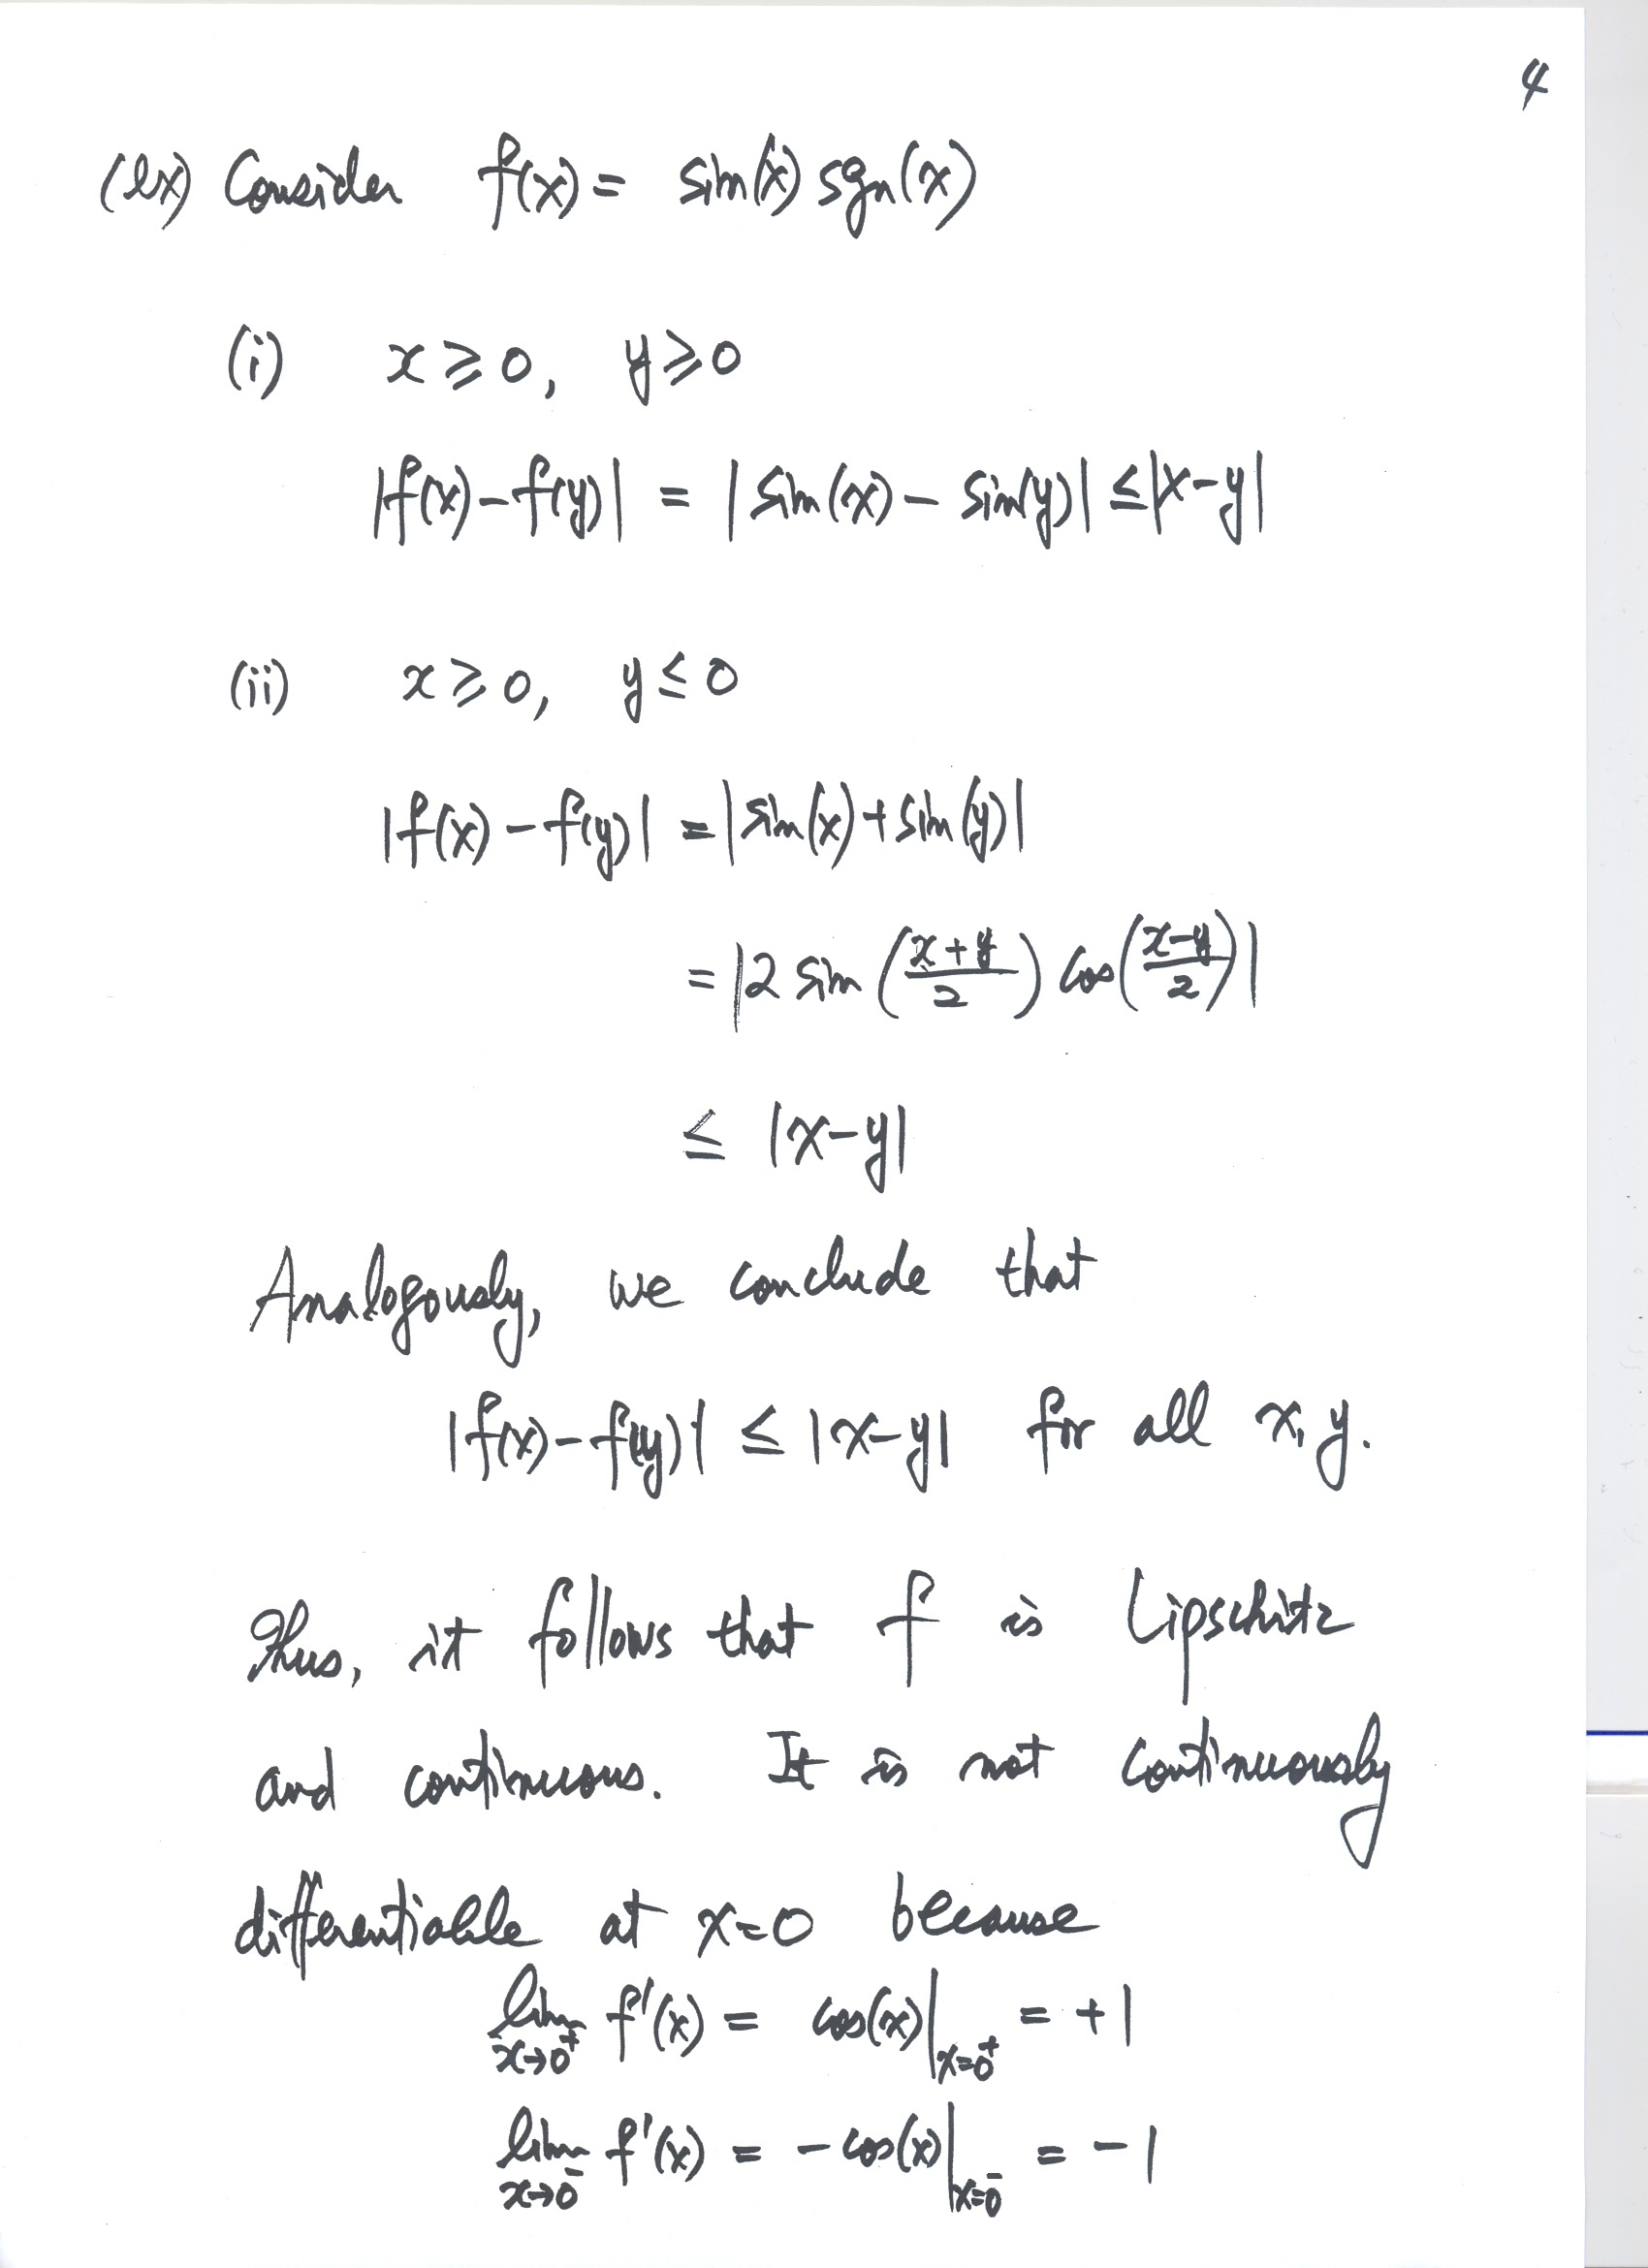 4
(ex) Consider f(x) = sin(x) sgn(x)
(i) x ≥ 0, y ≥ 0
|f(x) - f(y)| = |sin(x) - sin(y)| ≤ |x-y|
(ii) x ≥ 0, y ≤ 0
|f(x) - f(y)| = |sin(x) + sin(y)|
= |2 sin((x+y)/2) cos((x-y)/2)|
≤ |x-y|
Analogously, we conclude that
|f(x) - f(y)| ≤ |x-y| for all x, y.
Thus, it follows that f is Lipschitz
and continuous. It is not continuously
differentiable at x=0 because
lim x→0⁺ f'(x) = cos(x)|x=0⁺ = +1
lim x→0⁻ f'(x) = - cos(x)|x=0⁻ = -1